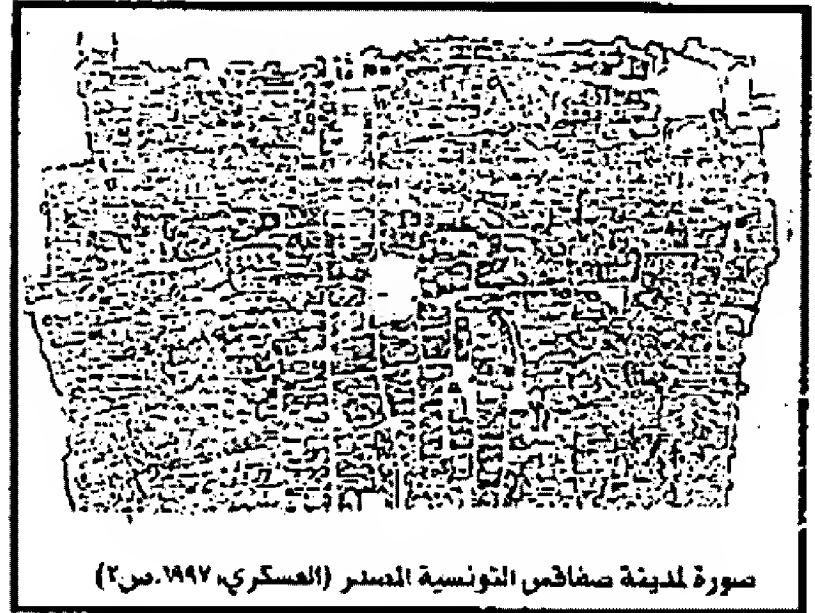 صورة لمدينة صفاقس التونسية المصدر (العسكري، ١٩٩٧، ص٢)